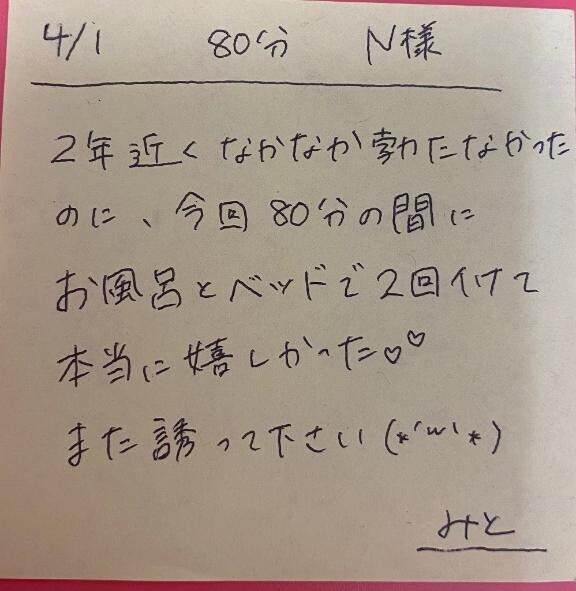 4/1 80分 N様
2年近くなかなか勃たなかった
のに、今回80分の間に
お風呂とベッドで2回イけて
本当に嬉しかった♡♡
また誘って下さい(*'ω'*)
みと